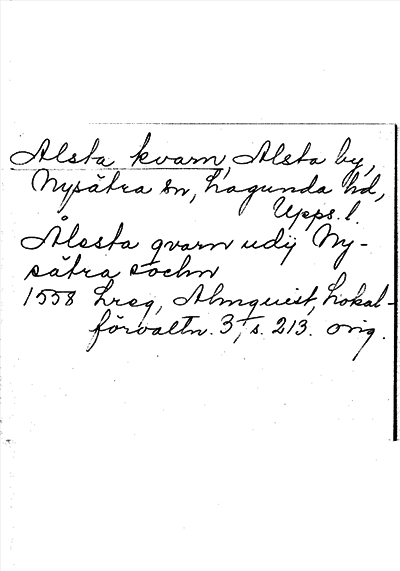 Alsta kvarn, Alsta by,
Nysätra sn, Lagunda hd,
Upps. l.
Ålssta qvarn udij Ny-
sätra sochn
1558 Lreg, Almquist, Lokal-
förvaltn. 3, s. 213. orig.